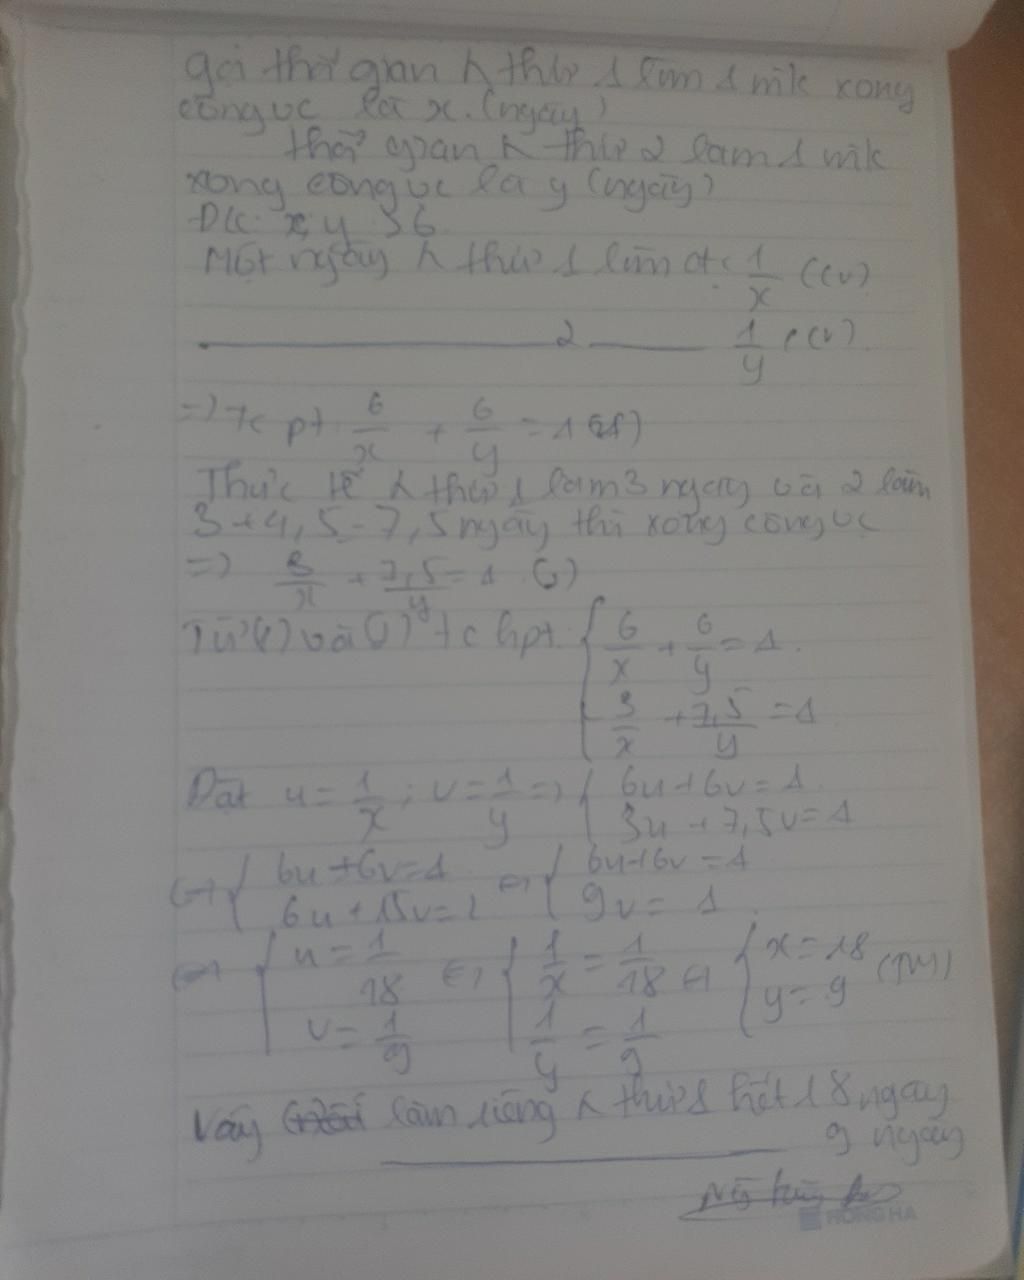 Gọi thời gian ^ thứ 1 làm 1 mk xong
công vc là x. (ngày)
thời gian ^ thứ 2 làm 1 mk
xong công vc là y (ngày)
ĐK: x, y > 6
Một ngày ^ thứ 1 làm đc 1/x (cv)
2 1/y (cv)
=> Tc pt 6/x + 6/y = 1 (1)
Thực tế ^ thứ 1 làm 3 ngày và 2 làm
3 + 4,5 = 7,5 ngày thì xong công vc
=> 3/x + 7,5/y = 1 (2)
Từ (1) và (2) tc hpt { 6/x + 6/y = 1
3/x + 7,5/y = 1
Đặt u = 1/x ; v = 1/y => { 6u + 6v = 1
3u + 7,5v = 1
<=> { 6u + 6v = 1 <=> { 6u + 6v = 1
6u + 15v = 2 9v = 1
<=> { u = 1/18 <=> { 1/x = 1/18 <=> { x = 18 (TM)
v = 1/9 1/y = 1/9 y = 9
Vậy làm riêng ^ thứ 1 hết 18 ngày
9 ngày
HONG HA